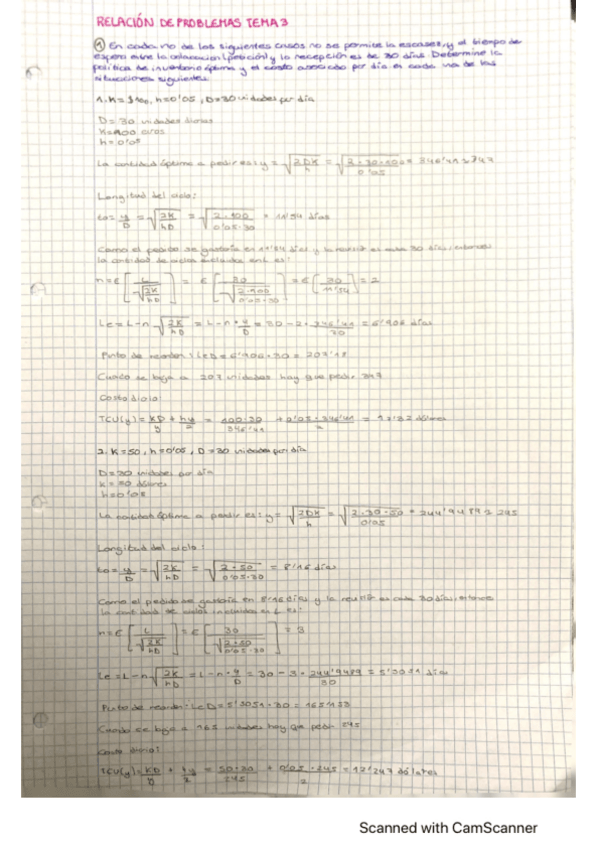 RELACIÓN DE PROBLEMAS TEMA 3
① En cada no de los siguientes casos no se permite la escasez, y el tiempo de
espera entre la colocación (petición) y la recepción es de 30 días. Determine la
política de inventario óptima y el costo asociado por día en cada una de las
situaciones siguientes:
1. K= $100, h=0'05, D=30 unidades por día
D= 30 unidades diarias
K=100
h= 0'05
La cantidad óptima a pedir es: y = √(2DK/h) = √(2·30·100/0'05) = 346'41
Longitud del ciclo:
to= y/D = √(2K/hD) = √(2·100/0'05·30) = 11'54 días
Como el pedido se gastaría en 11'54 días y la reunión es cada 30 días, entonces
la cantidad de ciclos incluidos en L es:
n=E[L/√(2K/hD)] = E[30/√(2·100/0'05·30)] = E[30/11'54] = 2
Le=L-n√(2K/hD) = L-n·y/D = 30-2·346'41/30 = 6'906 días
Punto de reorden: LeD = 6'906·30 = 207'18
Cuando se baja a 207 unidades hay que pedir 347
Costo diario:
TCU(y)= KD/y + hy/2 = 100·30/346'41 + 0'05·346'41/2 = 17'32 dólares
2. K=50, h=0'05, D=30 unidades por día
D=30 unidades por día
K = 50 dólares
h=0'05
La cantidad óptima a pedir es: y= √(2DK/h) = √(2·30·50/0'05) = 244'94892245
Longitud del ciclo:
to= y/D = √(2K/hD) = √(2·50/0'05·30) = 8'16 días
Como el pedido se gastaría en 8'16 días y la reunión es cada 30 días, entonces
la cantidad de ciclos incluidos en L es:
n=E[L/√(2K/hD)] = E[30/√(2·50/0'05·30)] = 3
Le= L-n√(2K/hD) = L-n·y/D = 30-3·244'9489/30 = 5'5051 días
Punto de reorden: LeD = 5'5051·30 = 165'153
Cuando se baja a 165 unidades hay que pedir 245
Costo diario:
TCU(y)= KD/y + hy/2 = 50·30/245 + 0'05·245/2 = 12'247 dólares
Scanned with CamScanner